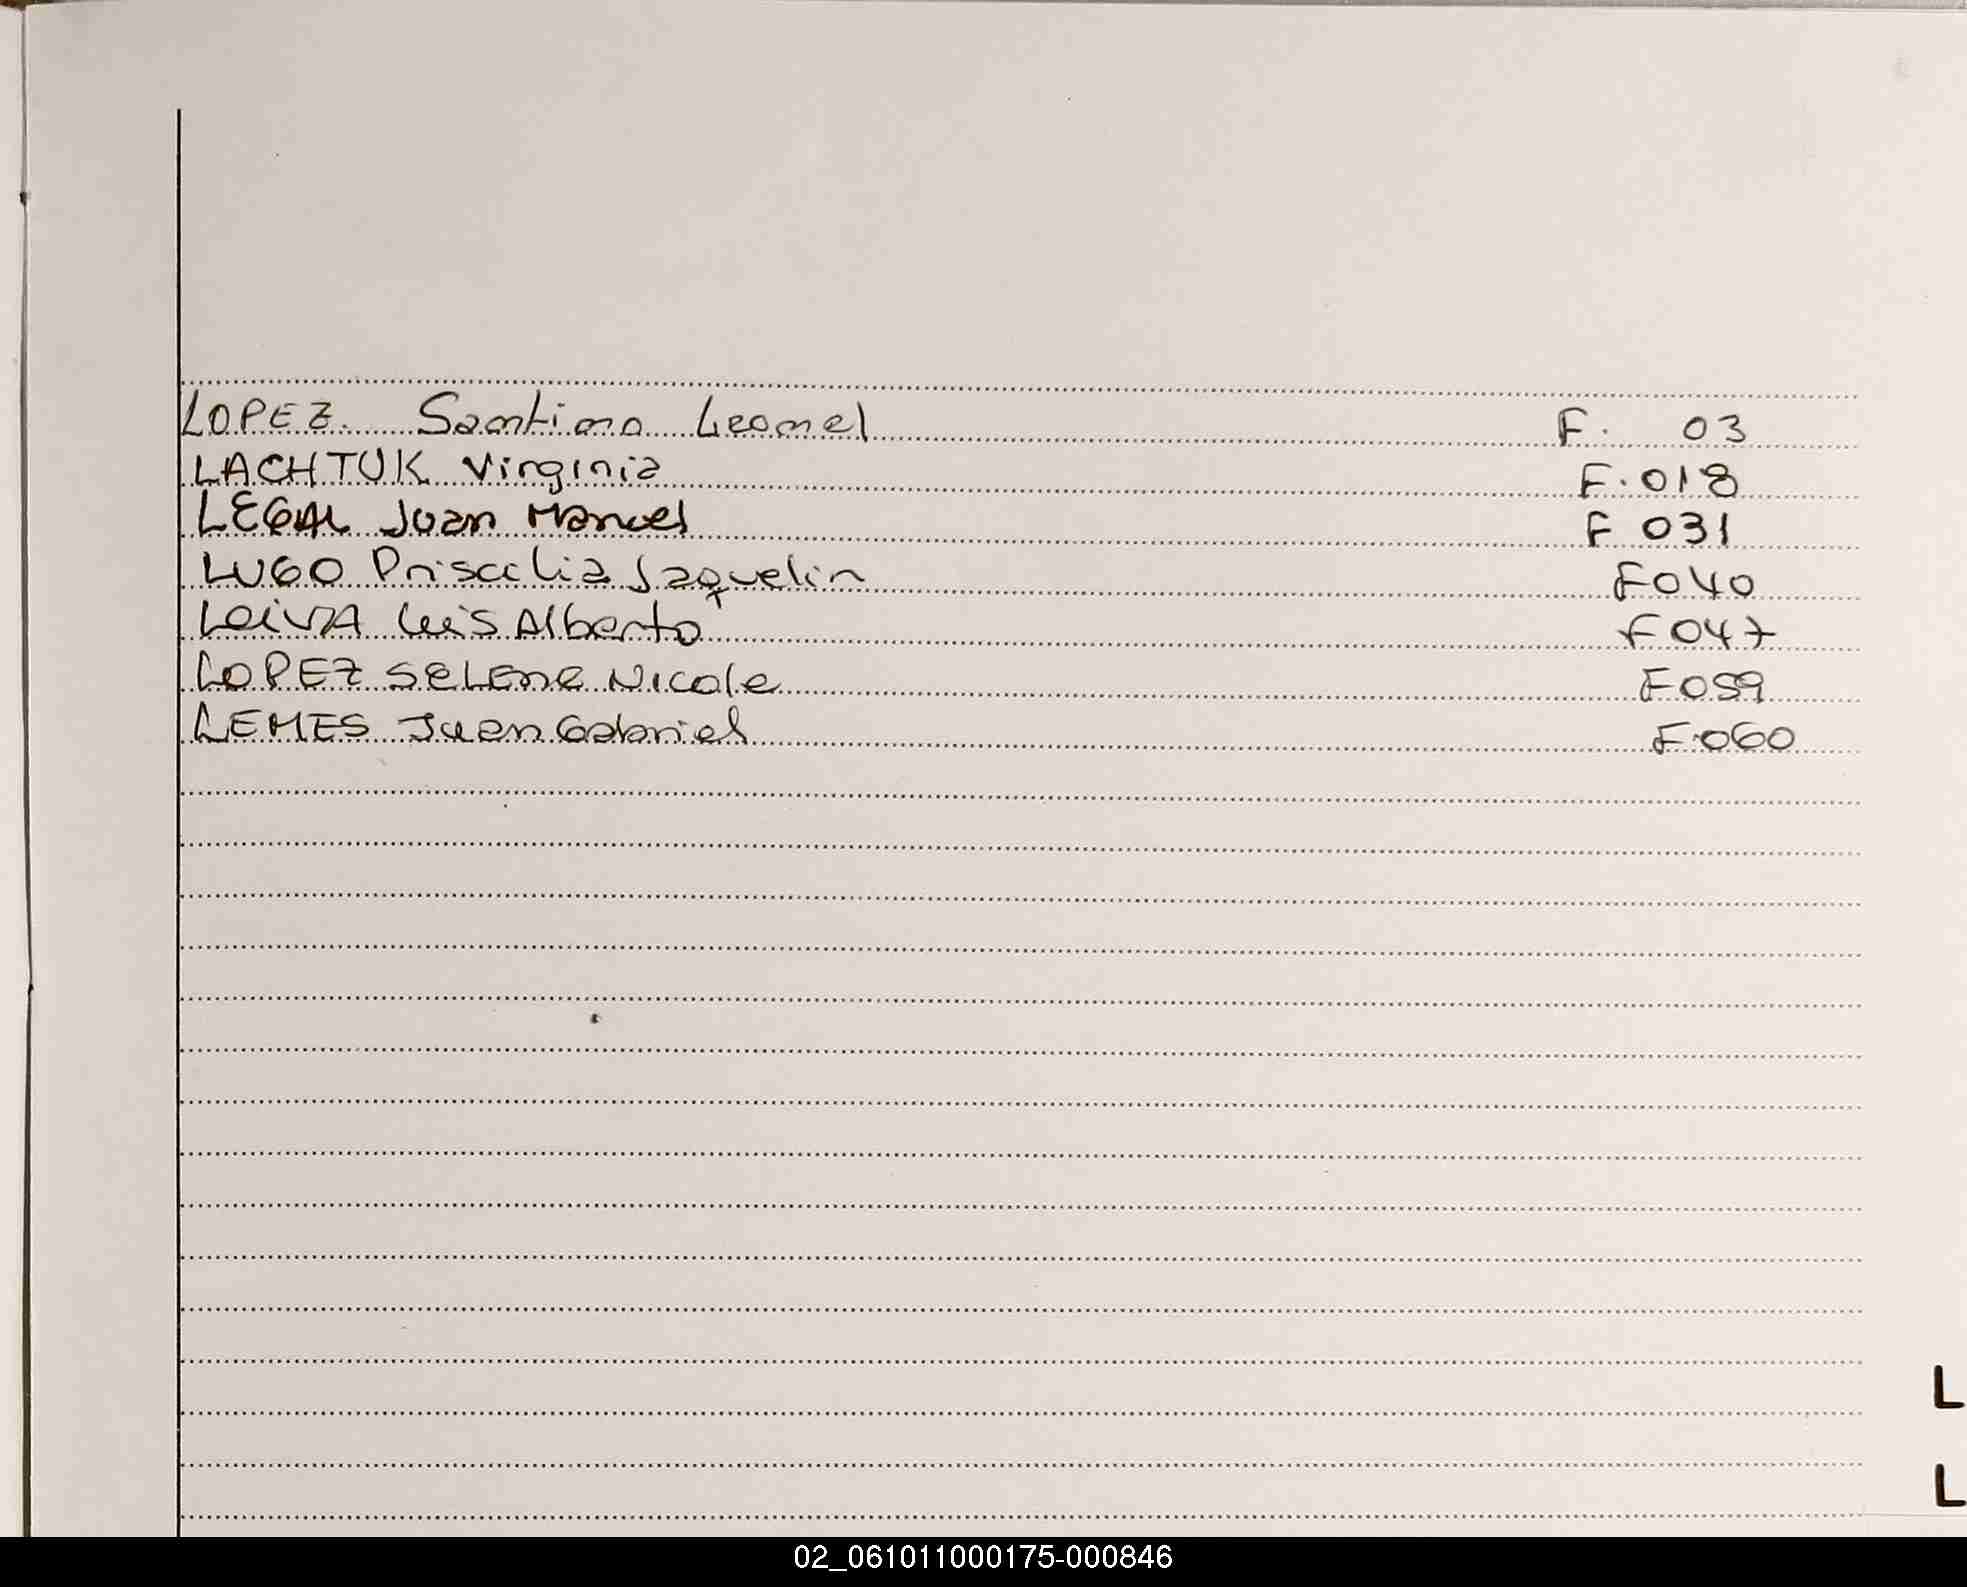 LOPEZ Santino Leonel F. 03
LACHTUK Virginia F. 018
LEGAL Juan Manuel F 031
LUGO Priscclia Jaquelin F040
LeiVA Luis Alberto F 047
LOPEZ SELENE Nicole F059
LEMES Juan Gabriel F060
L
L
02_061011000175-000846